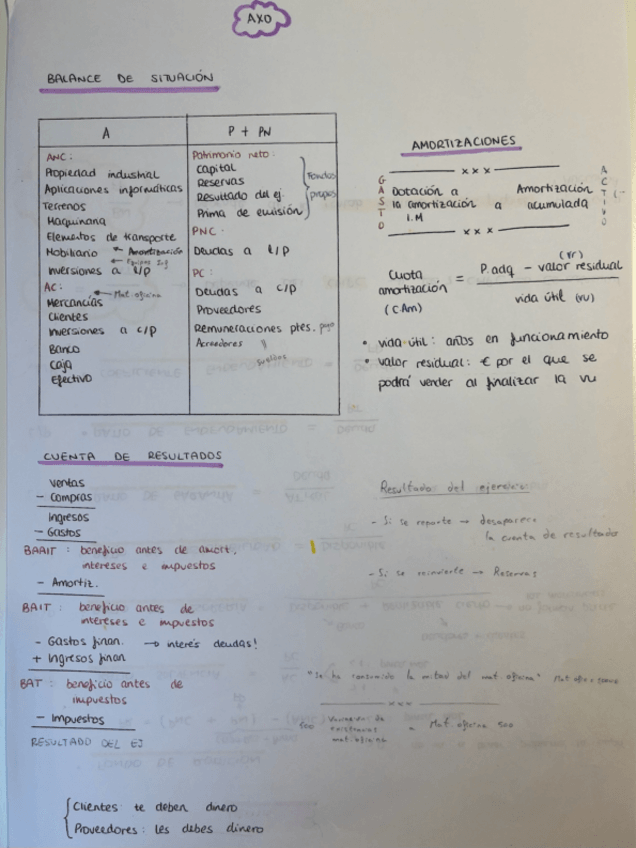 AXO
BALANCE DE SITUACIÓN
A
P + PN
ANC:
Propiedad industrial
Aplicaciones informáticas
Terrenos
Maquinaria
Elementos de transporte
Mobiliario ← Amortización
← Equipos Inf
Inversiones a l/p
AC: ← Mat. oficina
Mercancías
Clientes
Inversiones a c/p
Banco
Caja
Efectivo
Patrimonio neto:
Capital
Reservas
Resultado del ej.
Prima de emisión
Fondos
propios
PNC:
Deudas a l/p
PC:
Deudas a c/p
Proveedores
Remuneraciones ptes. pago
Acreedores
AMORTIZACIONES
x x x
GASTO
Dotación a
la amortización a
I.M
Amortización
acumulada
ACTIVO
(-
x x x
Cuota
amortización
(CAm)
= P.adq - valor residual
(vr)
vida útil (vu)
• vida útil: años en funcionamiento
• valor residual: € por el que se
podrá vender al finalizar la vu
CUENTA DE RESULTADOS
Ventas
- Compras
Ingresos
- Gastos
BAAIT: beneficio antes de amort.
intereses e impuestos
- Amortiz.
BAIT: beneficio antes de
intereses e impuestos
- Gastos finan. → interés deudas!
+ Ingresos finan
BAT: beneficio antes de
impuestos
- Impuestos
RESULTADO DEL EJ
Resultado del ejercicio:
- Si se reparte → desaparece
la cuenta de resultado
- Si se reinvierte → Reservas
"Se ha consumido la mitad del mat. oficina" Mat. ofi
x x x
500 Variación de
existencias
mat. oficina
a Mat. oficina 500
Clientes te deben dinero
Proveedores: les debes dinero